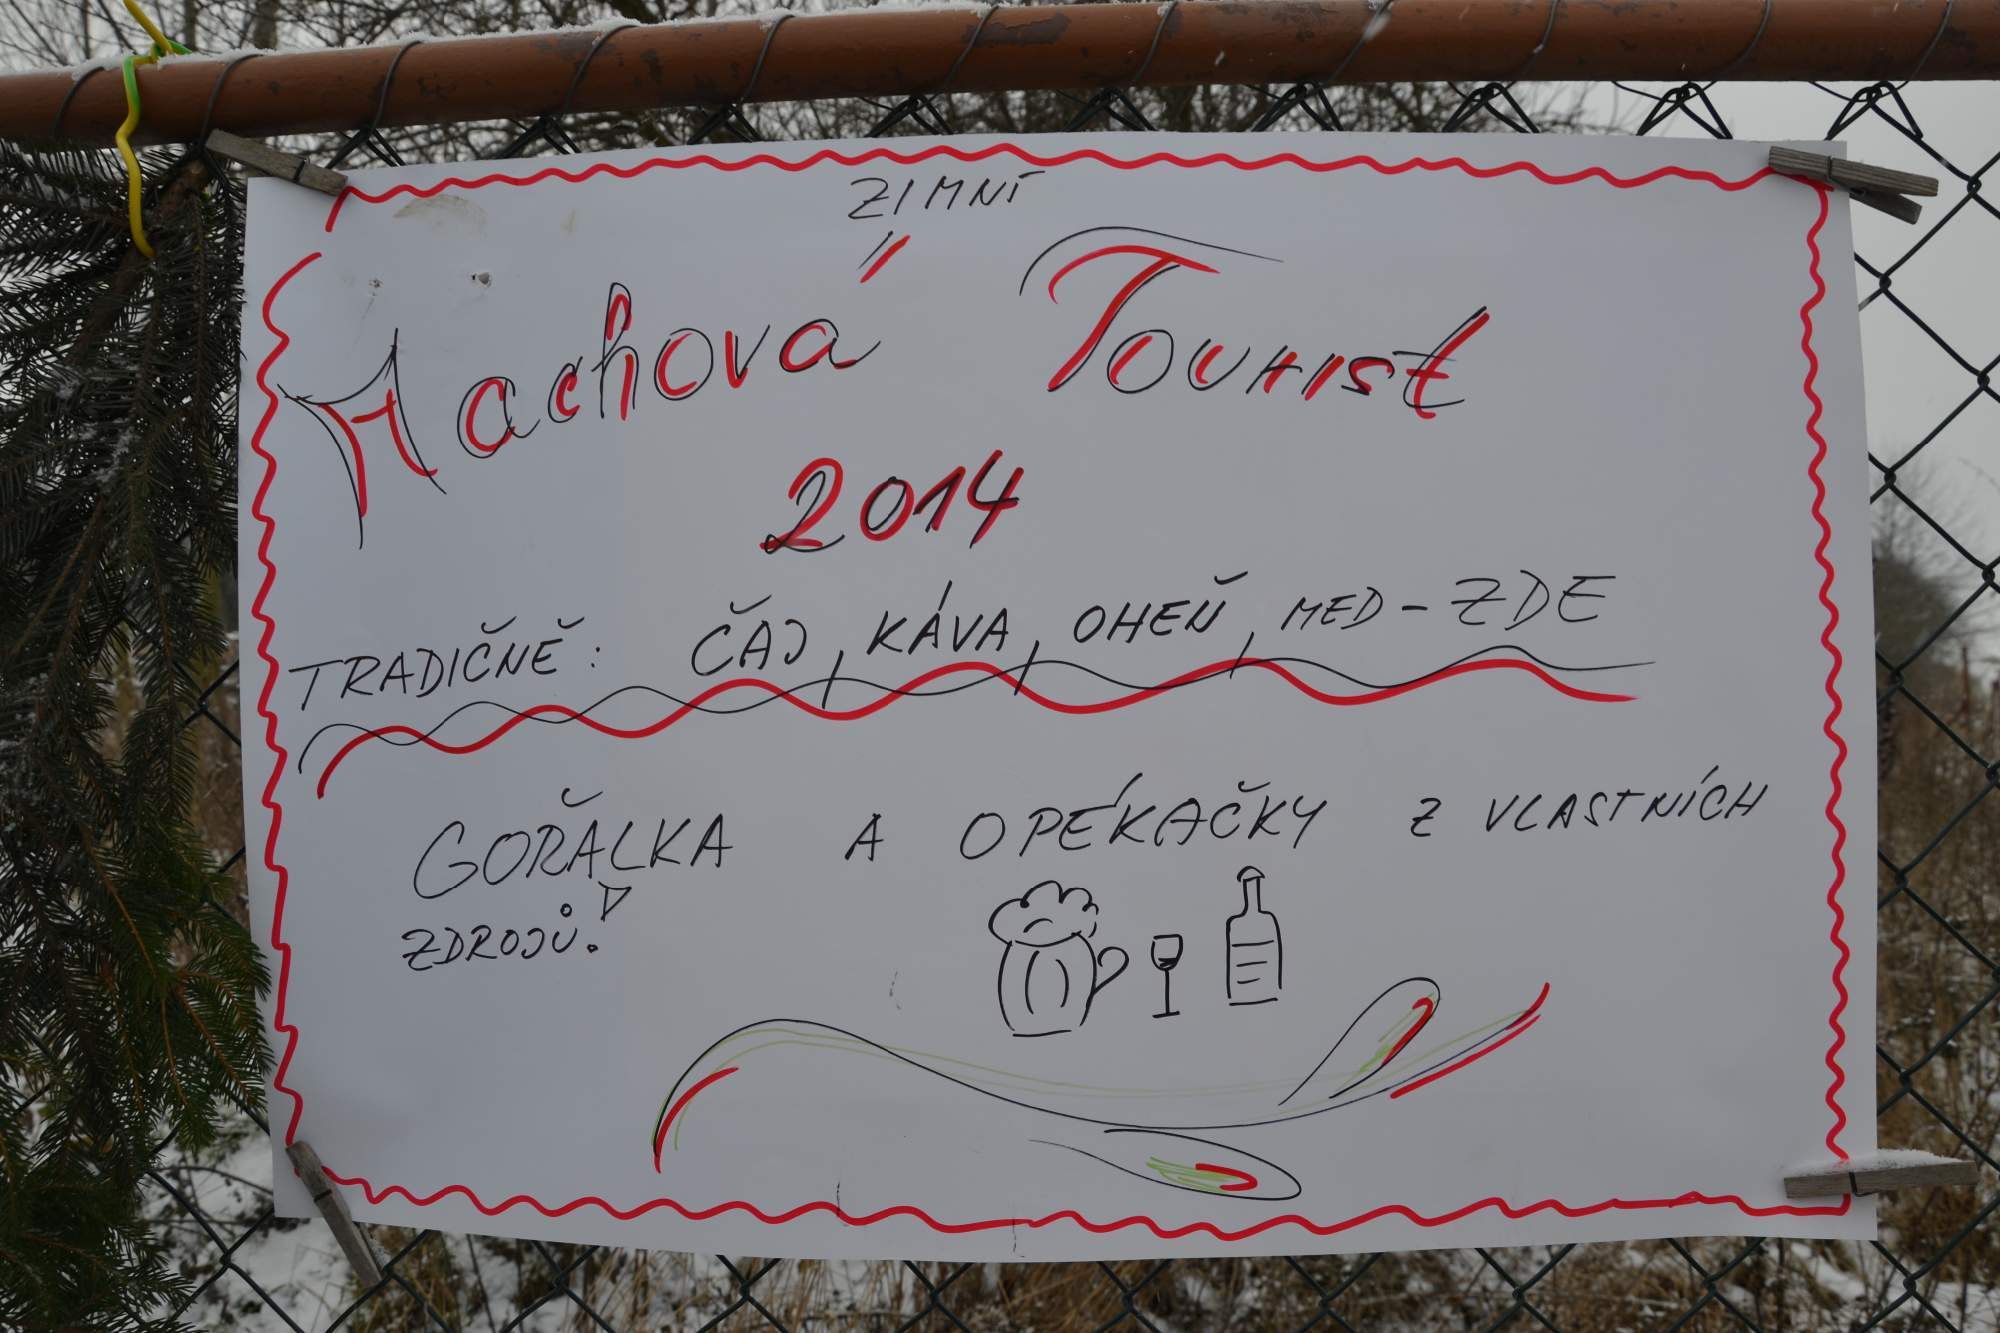 ZIMNÍ
Machová Tourist
2014
TRADIČNĚ: ČAJ, KÁVA, OHEŇ, MED - ZDE
GOŘALKA A OPÉKAČKY Z VLASTNÍCH
ZDROJŮ!